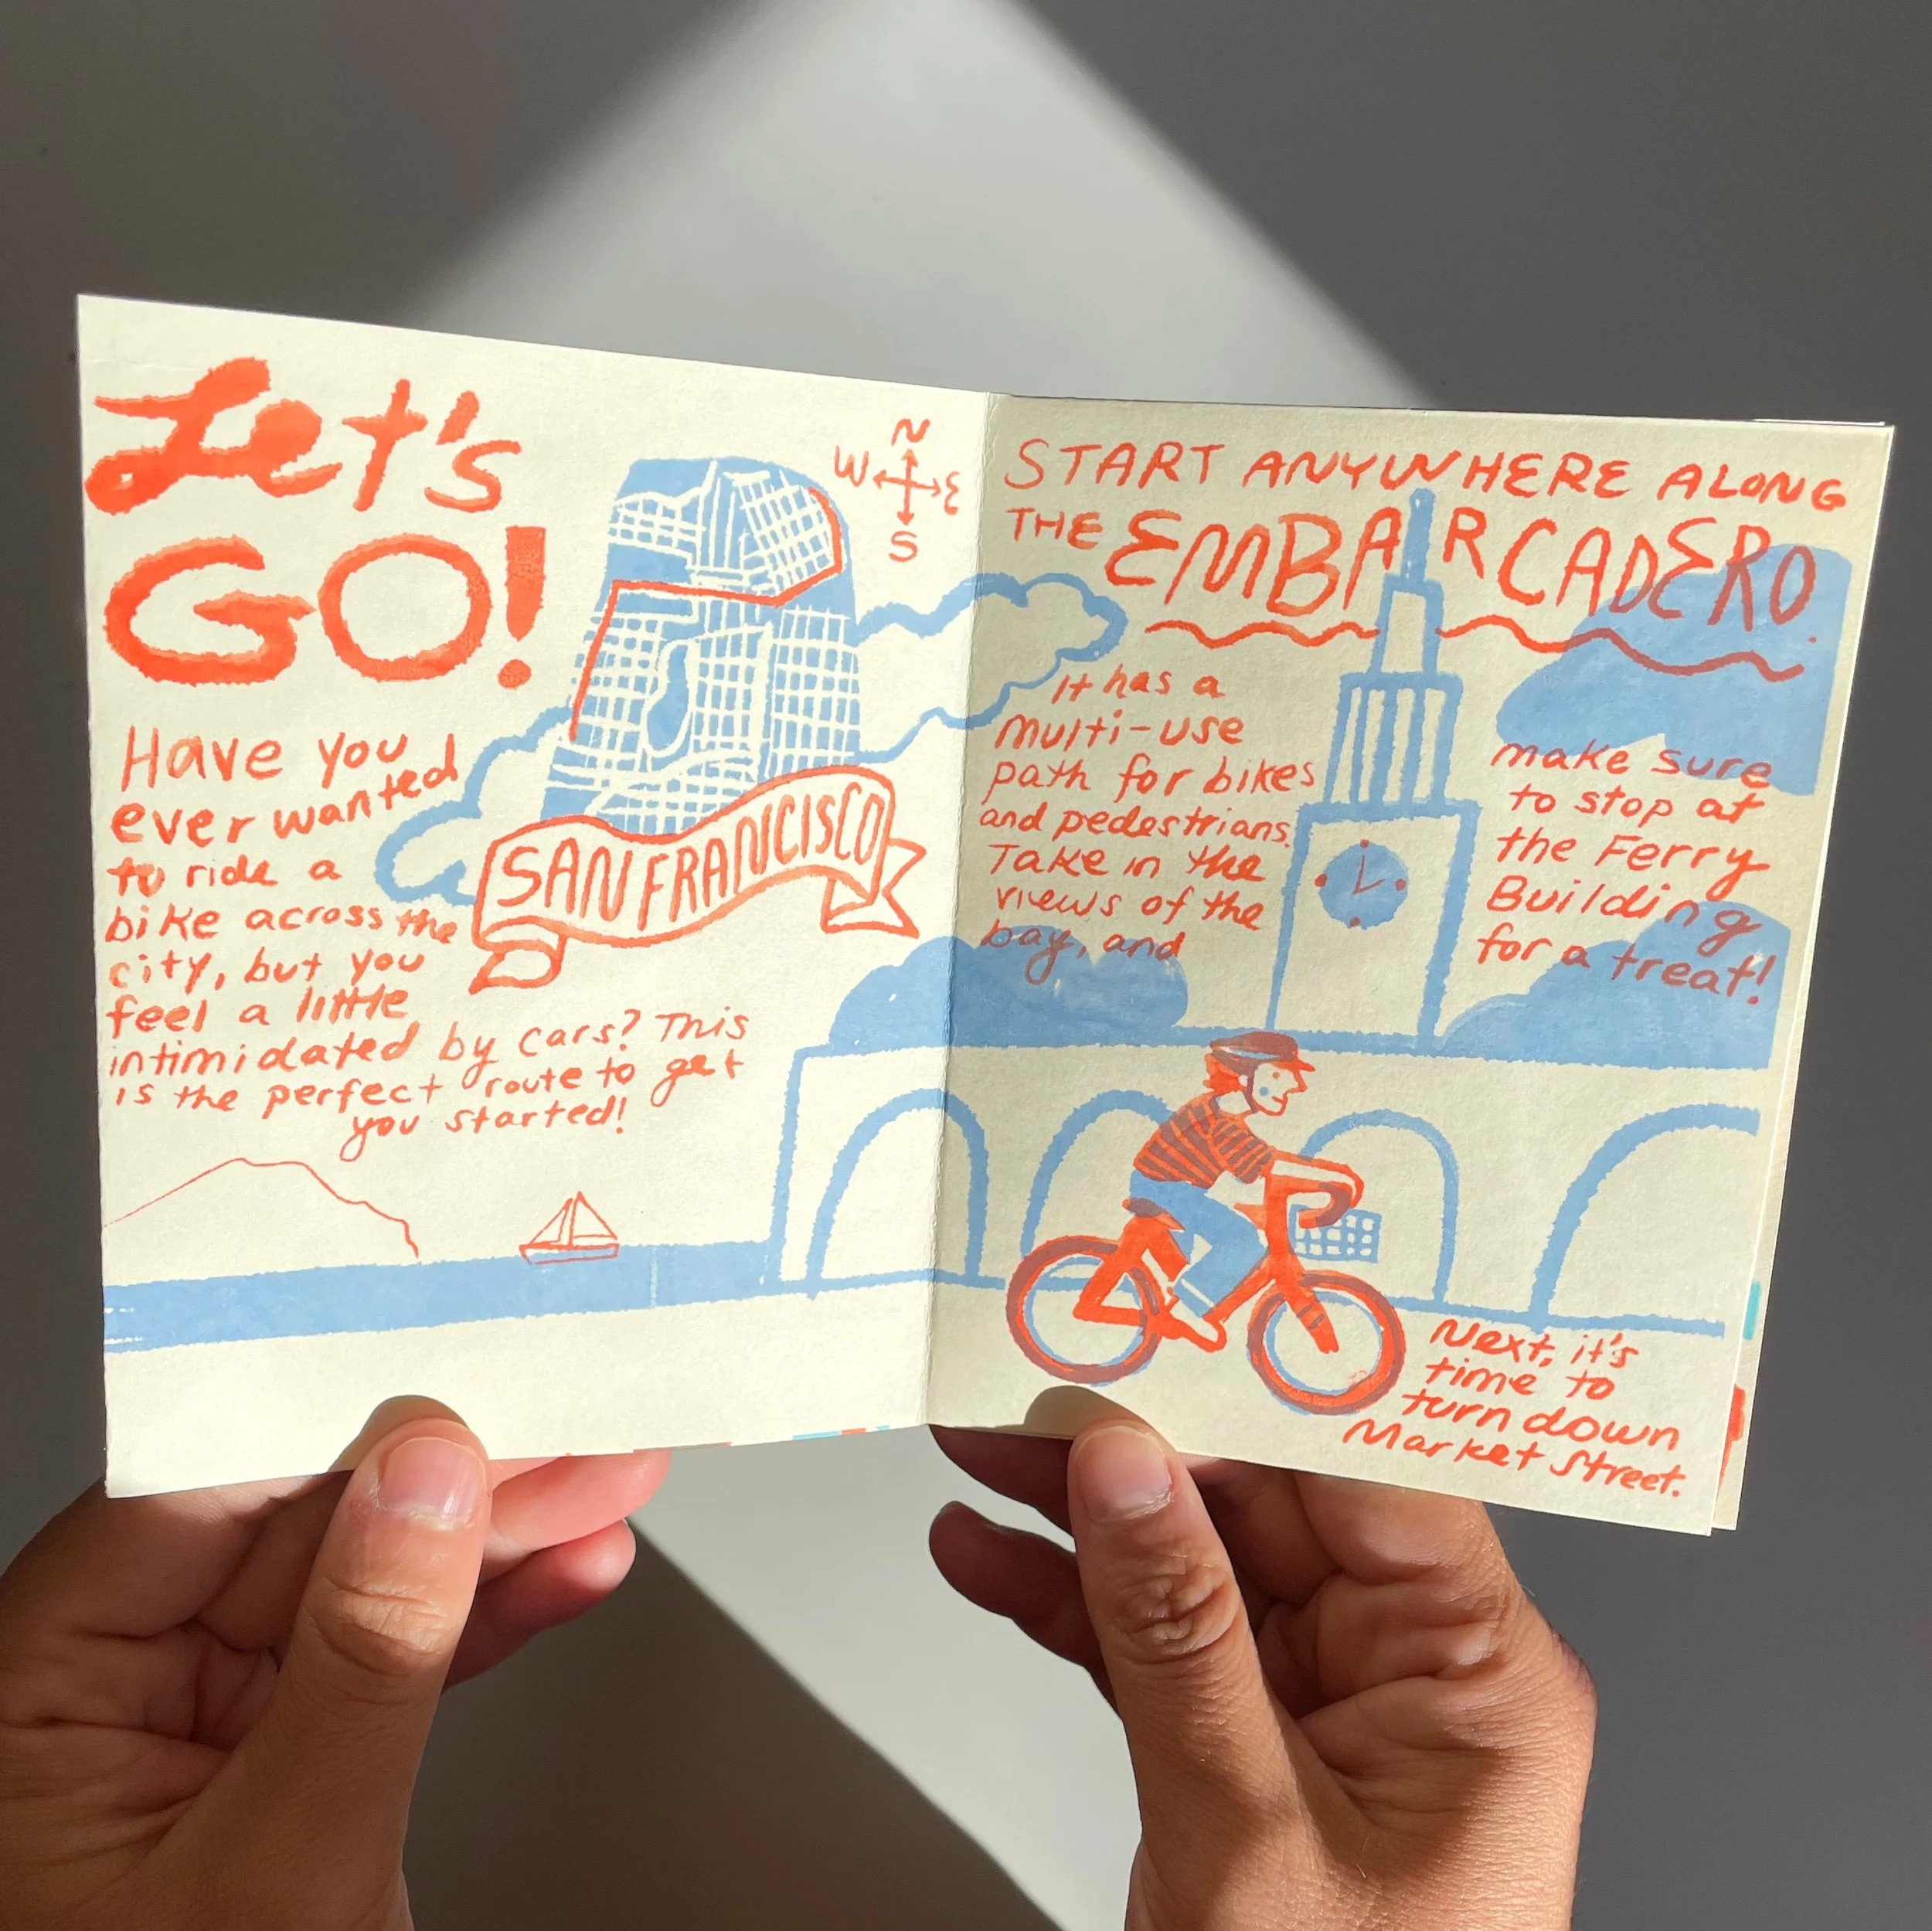 Let's
GO!
Have you
ever wanted
to ride a
bike across the
city, but you
feel a little
intimidated by cars? This
is the perfect route to get
you started!
N
W E
S
SAN FRANCISCO
START ANYWHERE ALONG
THE EMBARCADERO.
It has a
multi-use
path for bikes
and pedestrians.
Take in the
views of the
bay, and
make sure
to stop at
the Ferry
Building
for a treat!
Next, it's
time to
turn down
Market Street.